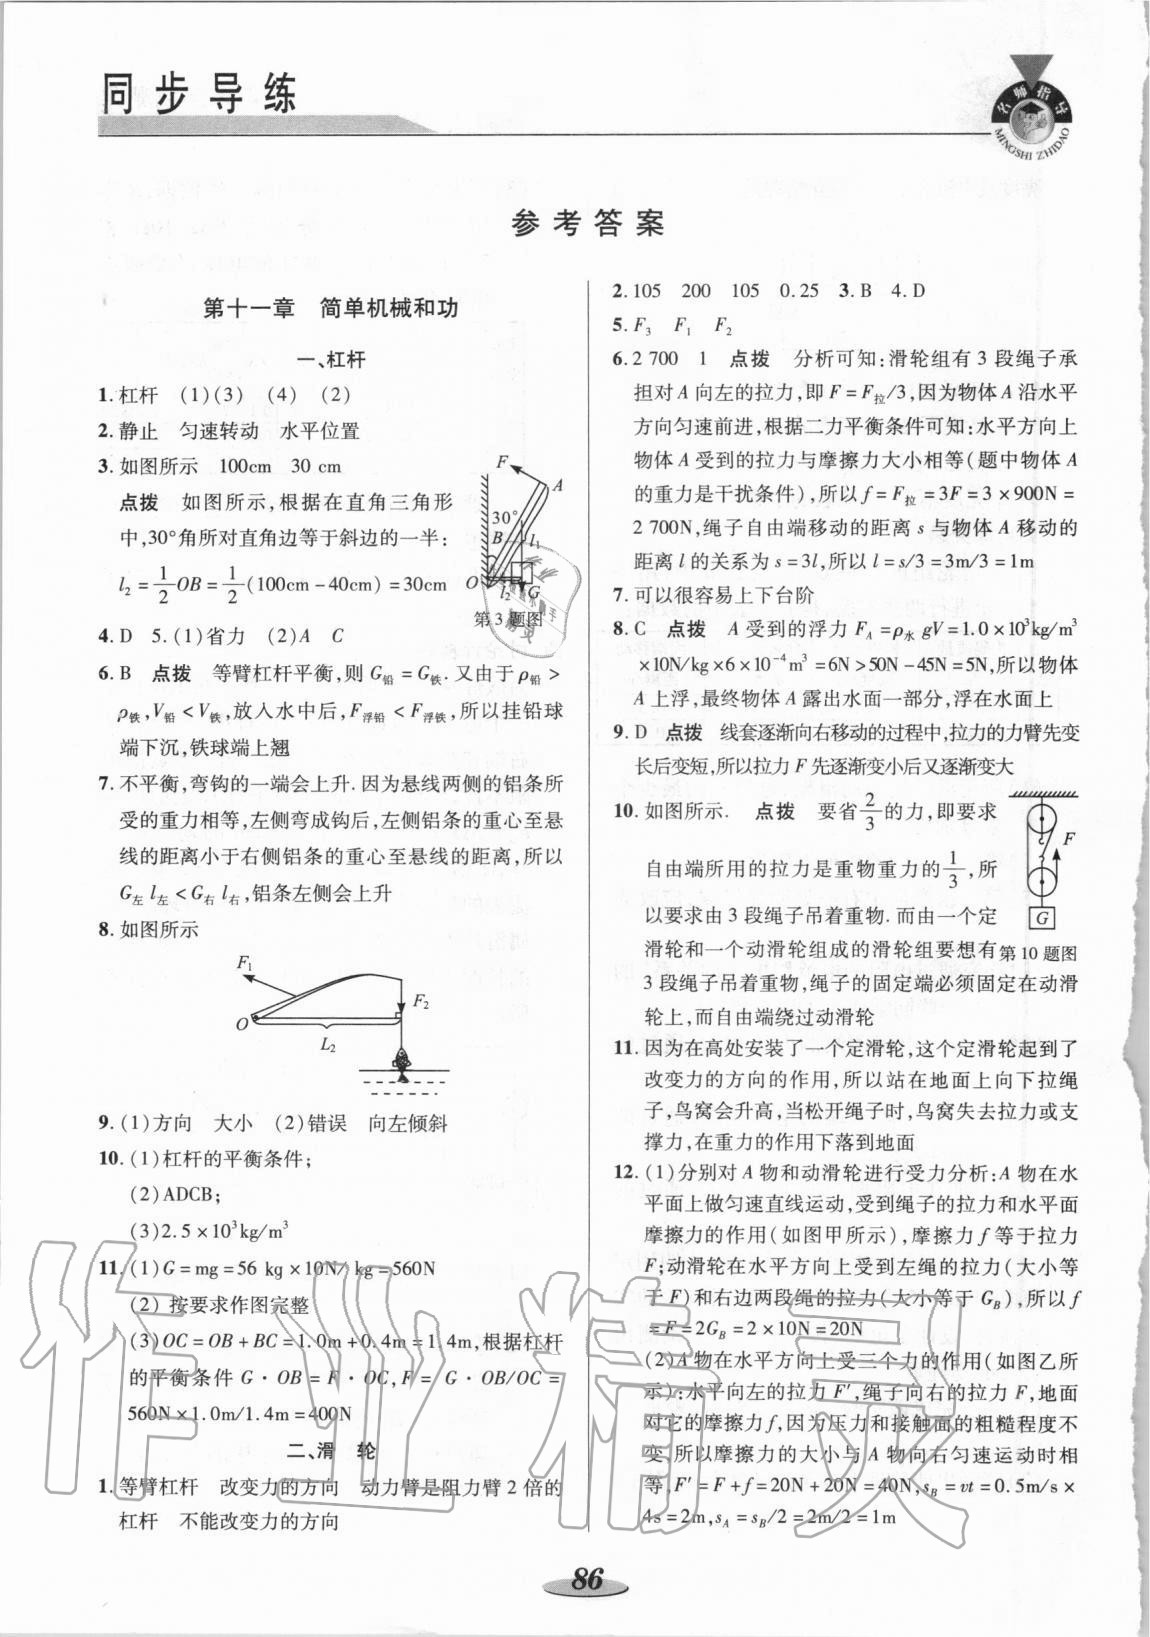 同步导练
名师指导
MINGSHI ZHIDAO
参考答案
第十一章 简单机械和功
一、杠杆
1.杠杆 (1)(3) (4) (2)
2.静止 匀速转动 水平位置
3.如图所示 100cm 30 cm
点拨 如图所示,根据在直角三角形
中,30°角所对直角边等于斜边的一半:
l₂=1/2OB=1/2(100cm-40cm)=30cm
F
A
30°
B
l₁
O
l₂
G
第3题图
4.D 5.(1)省力 (2)A C
6.B 点拨 等臂杠杆平衡,则G铅=G铁.又由于ρ铅>
ρ铁,V铅<V铁,放入水中后,F浮铅<F浮铁,所以挂铅球
端下沉,铁球端上翘
7.不平衡,弯钩的一端会上升.因为悬线两侧的铝条所
受的重力相等,左侧弯成钩后,左侧铝条的重心至悬
线的距离小于右侧铝条的重心至悬线的距离,所以
G左l左<G右l右,铝条左侧会上升
8.如图所示
F₁
F₂
O
L₂
9.(1)方向 大小 (2)错误 向左倾斜
10.(1)杠杆的平衡条件;
(2)ADCB;
(3)2.5×10³kg/m³
11.(1)G=mg=56 kg×10N/kg=560N
(2) 按要求作图完整
(3)OC=OB+BC=1.0m+0.4m=1.4m,根据杠杆
的平衡条件G·OB=F·OC,F= G·OB/OC=
560N×1.0m/1.4m=400N
二、滑 轮
1.等臂杠杆 改变力的方向 动力臂是阻力臂2倍的
杠杆 不能改变力的方向
2.105 200 105 0.25 3.B 4.D
5.F₃ F₁ F₂
6.2 700 1 点拨 分析可知:滑轮组有3段绳子承
担对A向左的拉力,即F=F拉/3,因为物体A沿水平
方向匀速前进,根据二力平衡条件可知:水平方向上
物体A受到的拉力与摩擦力大小相等(题中物体A
的重力是干扰条件),所以f=F拉=3F=3×900N=
2 700N,绳子自由端移动的距离s与物体A移动的
距离l的关系为s=3l,所以l=s/3=3m/3=1m
7.可以很容易上下台阶
8.C 点拨 A受到的浮力F_A=ρ水gV=1.0×10³kg/m³
×10N/kg×6×10⁻⁴m³=6N>50N-45N=5N,所以物体
A上浮,最终物体A露出水面一部分,浮在水面上
9.D 点拨 线套逐渐向右移动的过程中,拉力的力臂先变
长后变短,所以拉力F先逐渐变小后又逐渐变大
10.如图所示. 点拨 要省2/3的力,即要求
自由端所用的拉力是重物重力的1/3,所
以要求由3段绳子吊着重物.而由一个定
滑轮和一个动滑轮组成的滑轮组要想有
3段绳子吊着重物,绳子的固定端必须固定在动滑
轮上,而自由端绕过动滑轮
F
G
第10题图
11.因为在高处安装了一个定滑轮,这个定滑轮起到了
改变力的方向的作用,所以站在地面上向下拉绳
子,鸟窝会升高,当松开绳子时,鸟窝失去拉力或支
撑力,在重力的作用下落到地面
12.(1)分别对A物和动滑轮进行受力分析:A物在水
平面上做匀速直线运动,受到绳子的拉力和水平面
摩擦力的作用(如图甲所示),摩擦力f等于拉力
F;动滑轮在水平方向上受到左绳的拉力(大小等
于F)和右边两段绳的拉力(大小等于G_B),所以f
=F=2G_B=2×10N=20N
(2)A物在水平方向上受三个力的作用(如图乙所
示):水平向左的拉力F′,绳子向右的拉力F,地面
对它的摩擦力f,因为压力和接触面的粗糙程度不
变,所以摩擦力的大小与A物向右匀速运动时相
等,F′=F+f=20N+20N=40N,s_B=vt=0.5m/s×
4s=2m,s_A=s_B/2=2m/2=1m
86
作业精灵